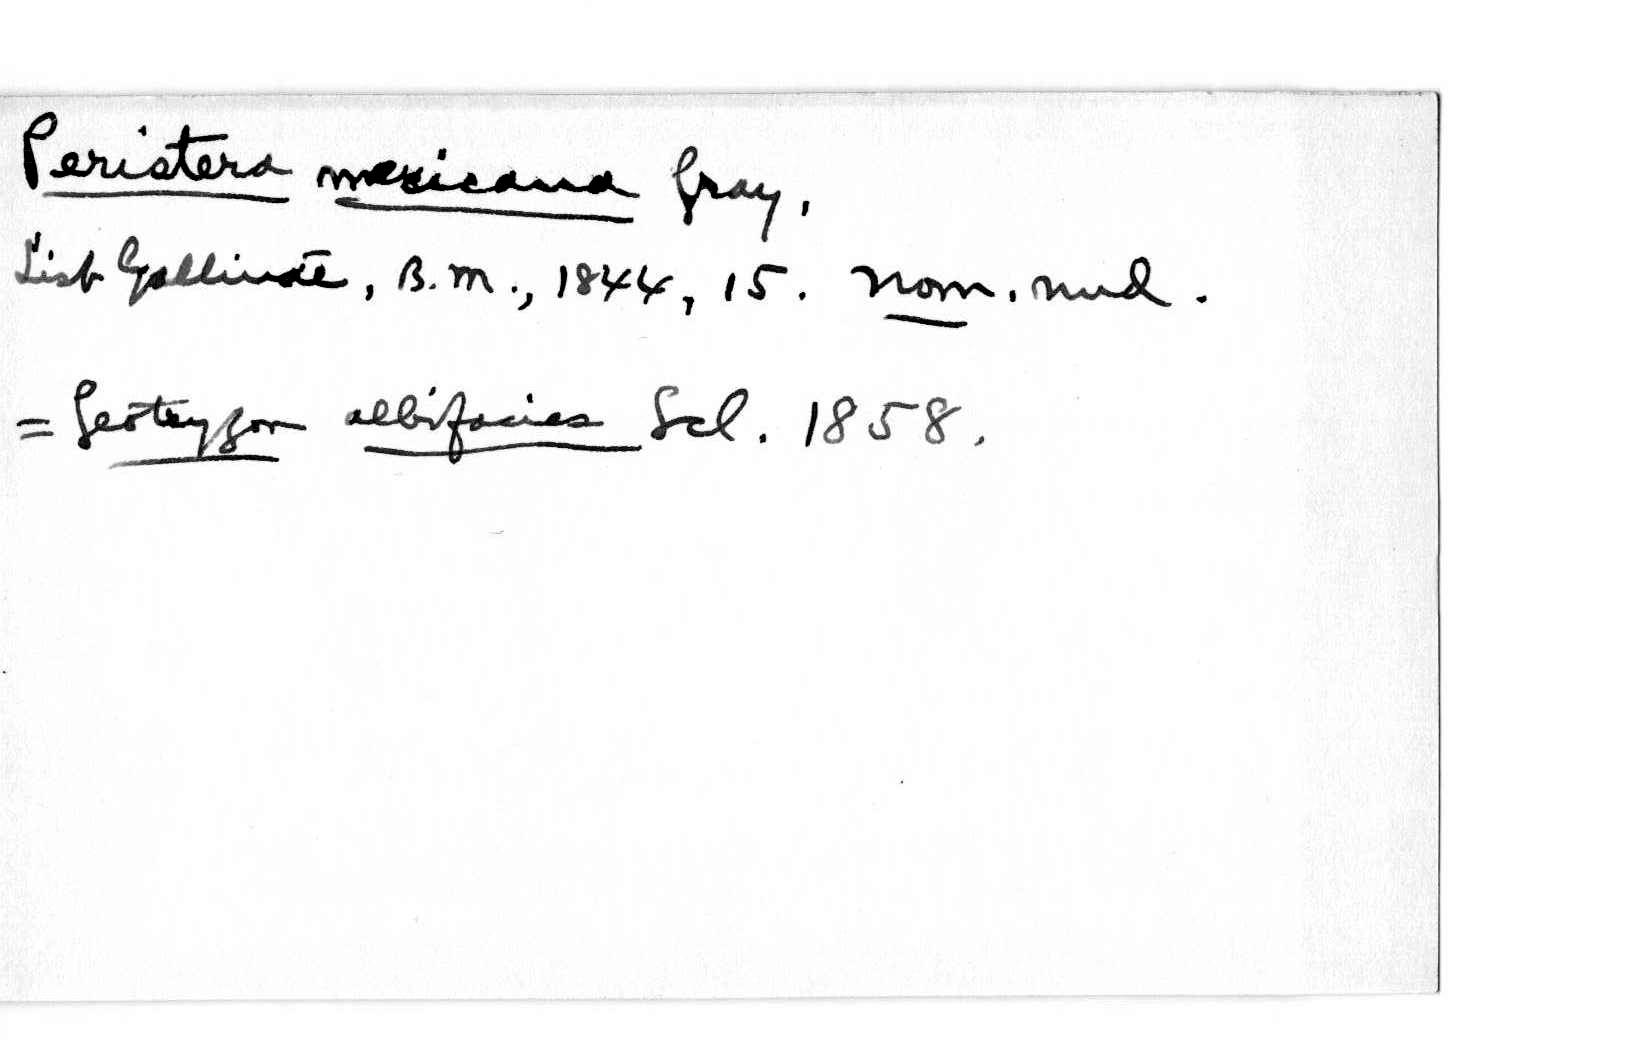 Peristera mexicana Gray,
List Gallinae, B.M., 1844, 15. Nom. nud.
= Geotrygon albifacies Scl. 1858.